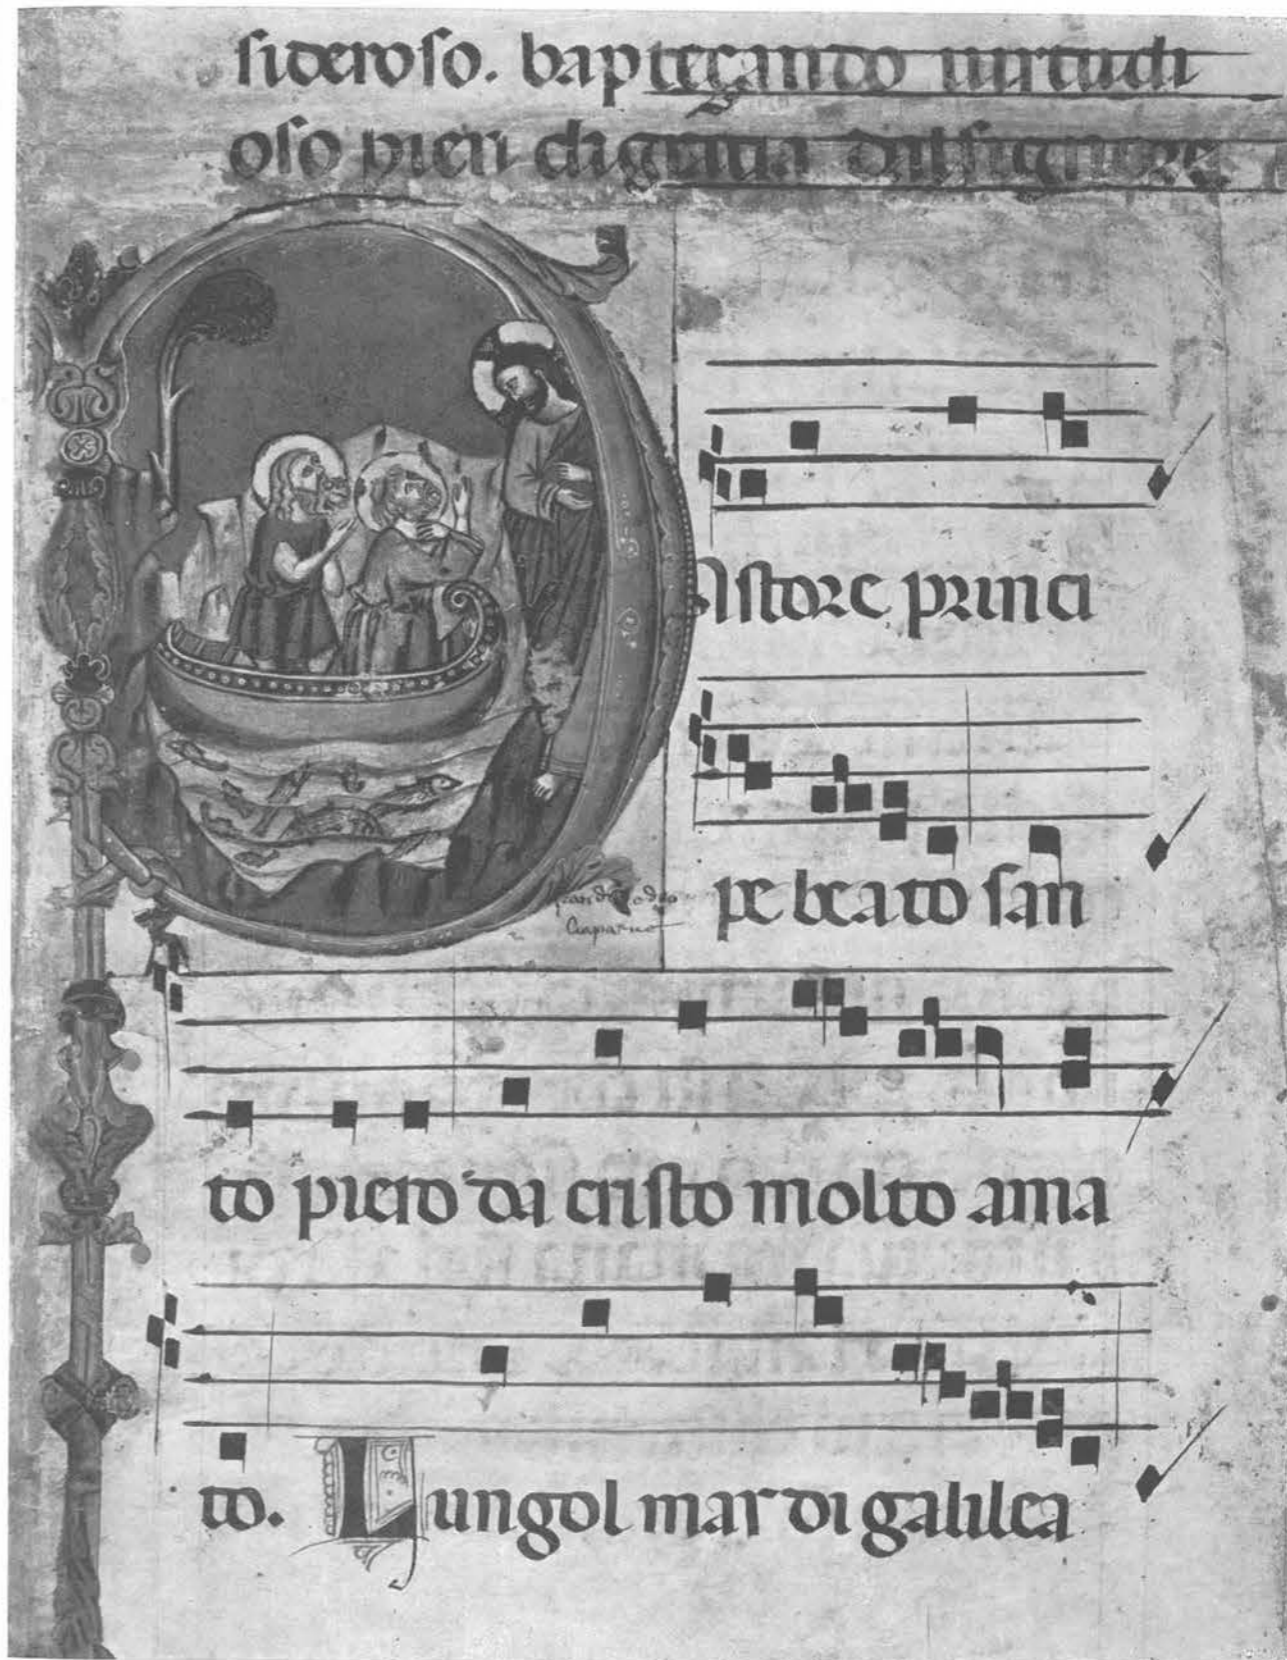 sideroso. bapteçando uirtudi
oso pien di gratia dalsignore
Pastore princi
pe beato san
to piero da cristo molto ama
to. Lungol mar di galilea